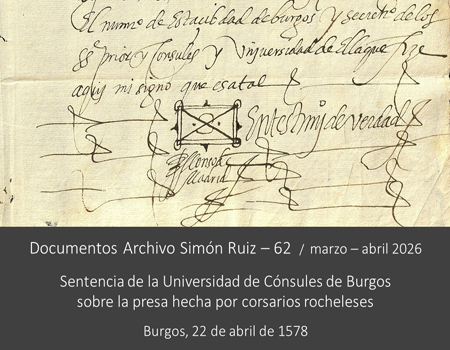 El numº de esta cibdad de burgos y secretº de los
ss prior y consules y Vniuersidad de ella que fize
aquy mi signo que es a tal
En testimº de verdad
Alonso de
Madrid
Documentos Archivo Simón Ruiz – 62 / marzo – abril 2026
Sentencia de la Universidad de Cónsules de Burgos
sobre la presa hecha por corsarios rocheleses
Burgos, 22 de abril de 1578